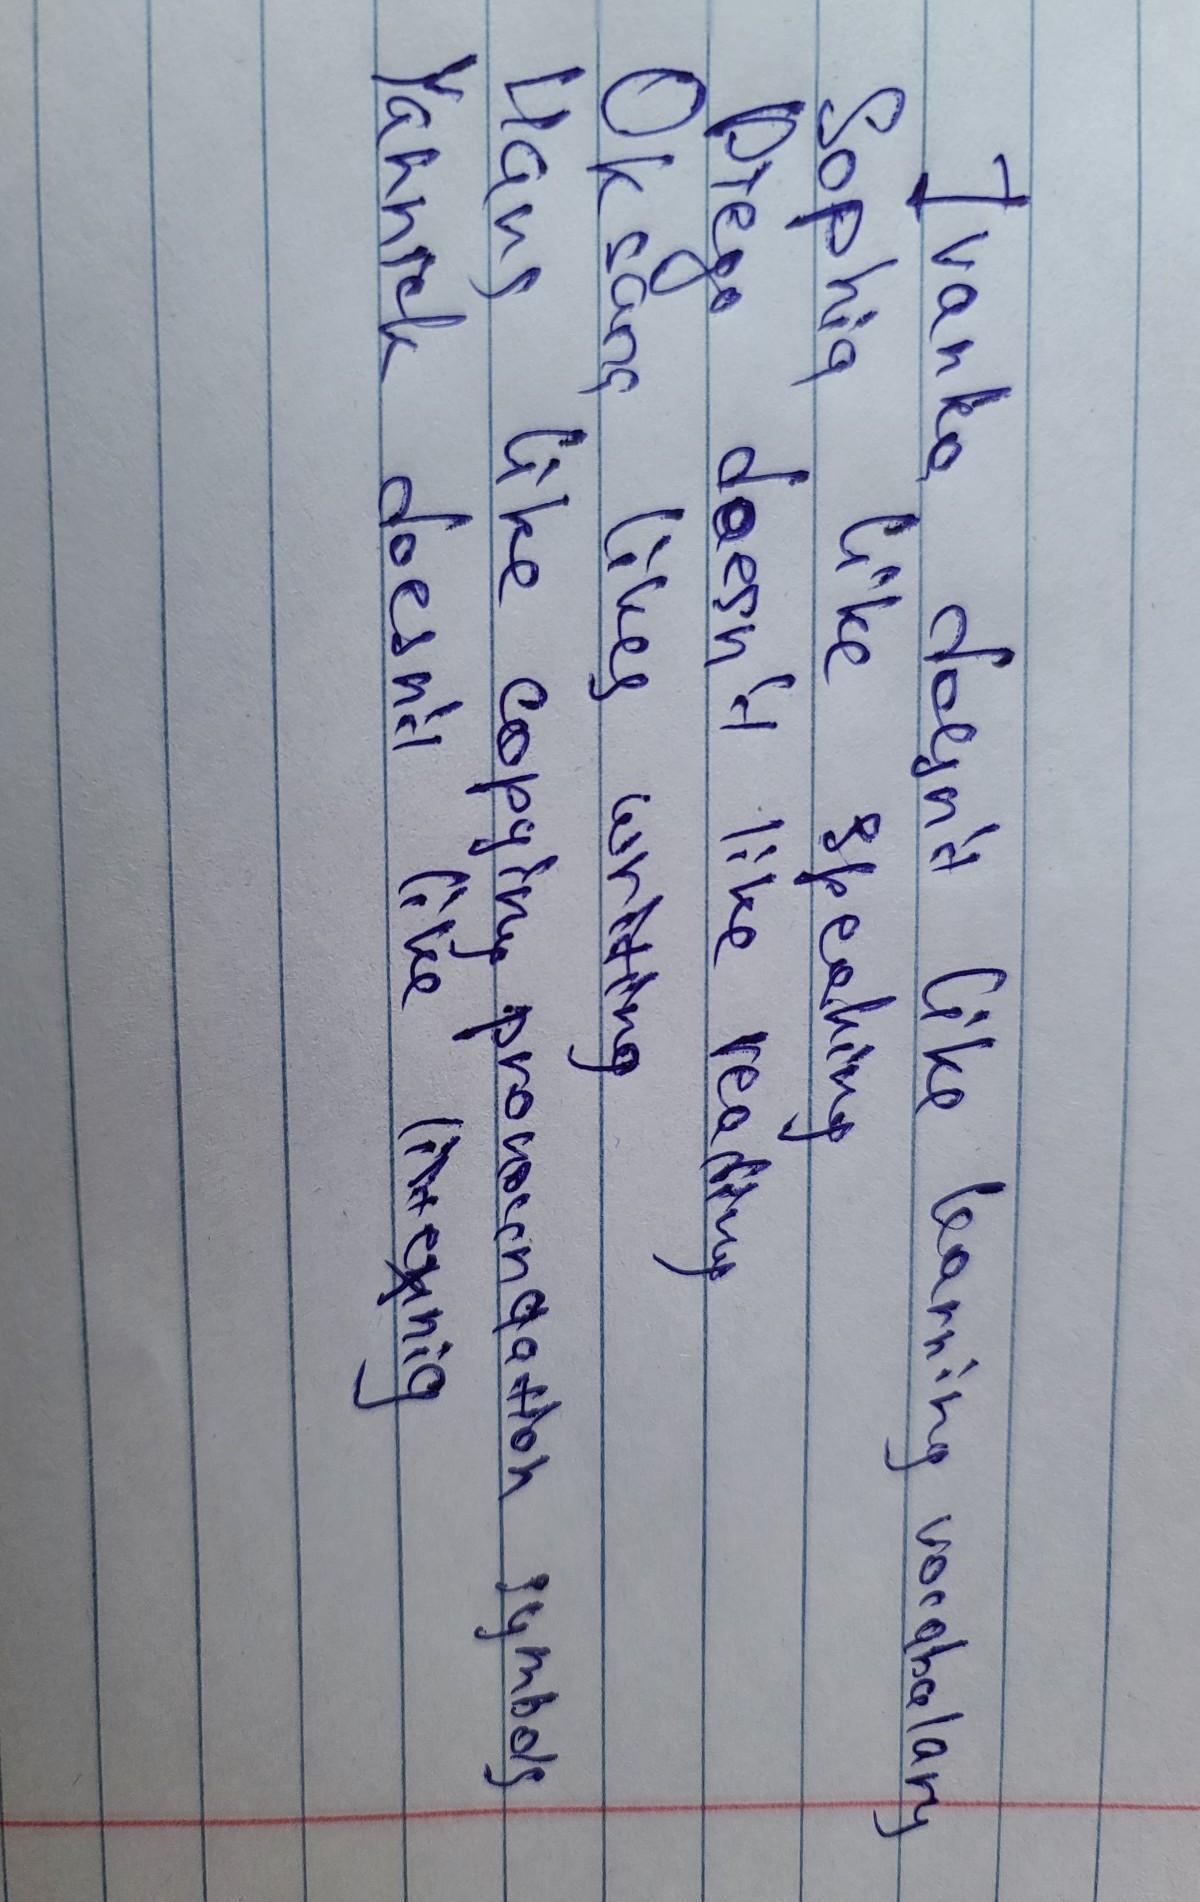 Ivanka doesn't like learning vocabalary
Sophia like speaking
Diego doesn't like reading
Oksana likes writting
Hans like copying pronocngation symbols
Yannick doesn't like